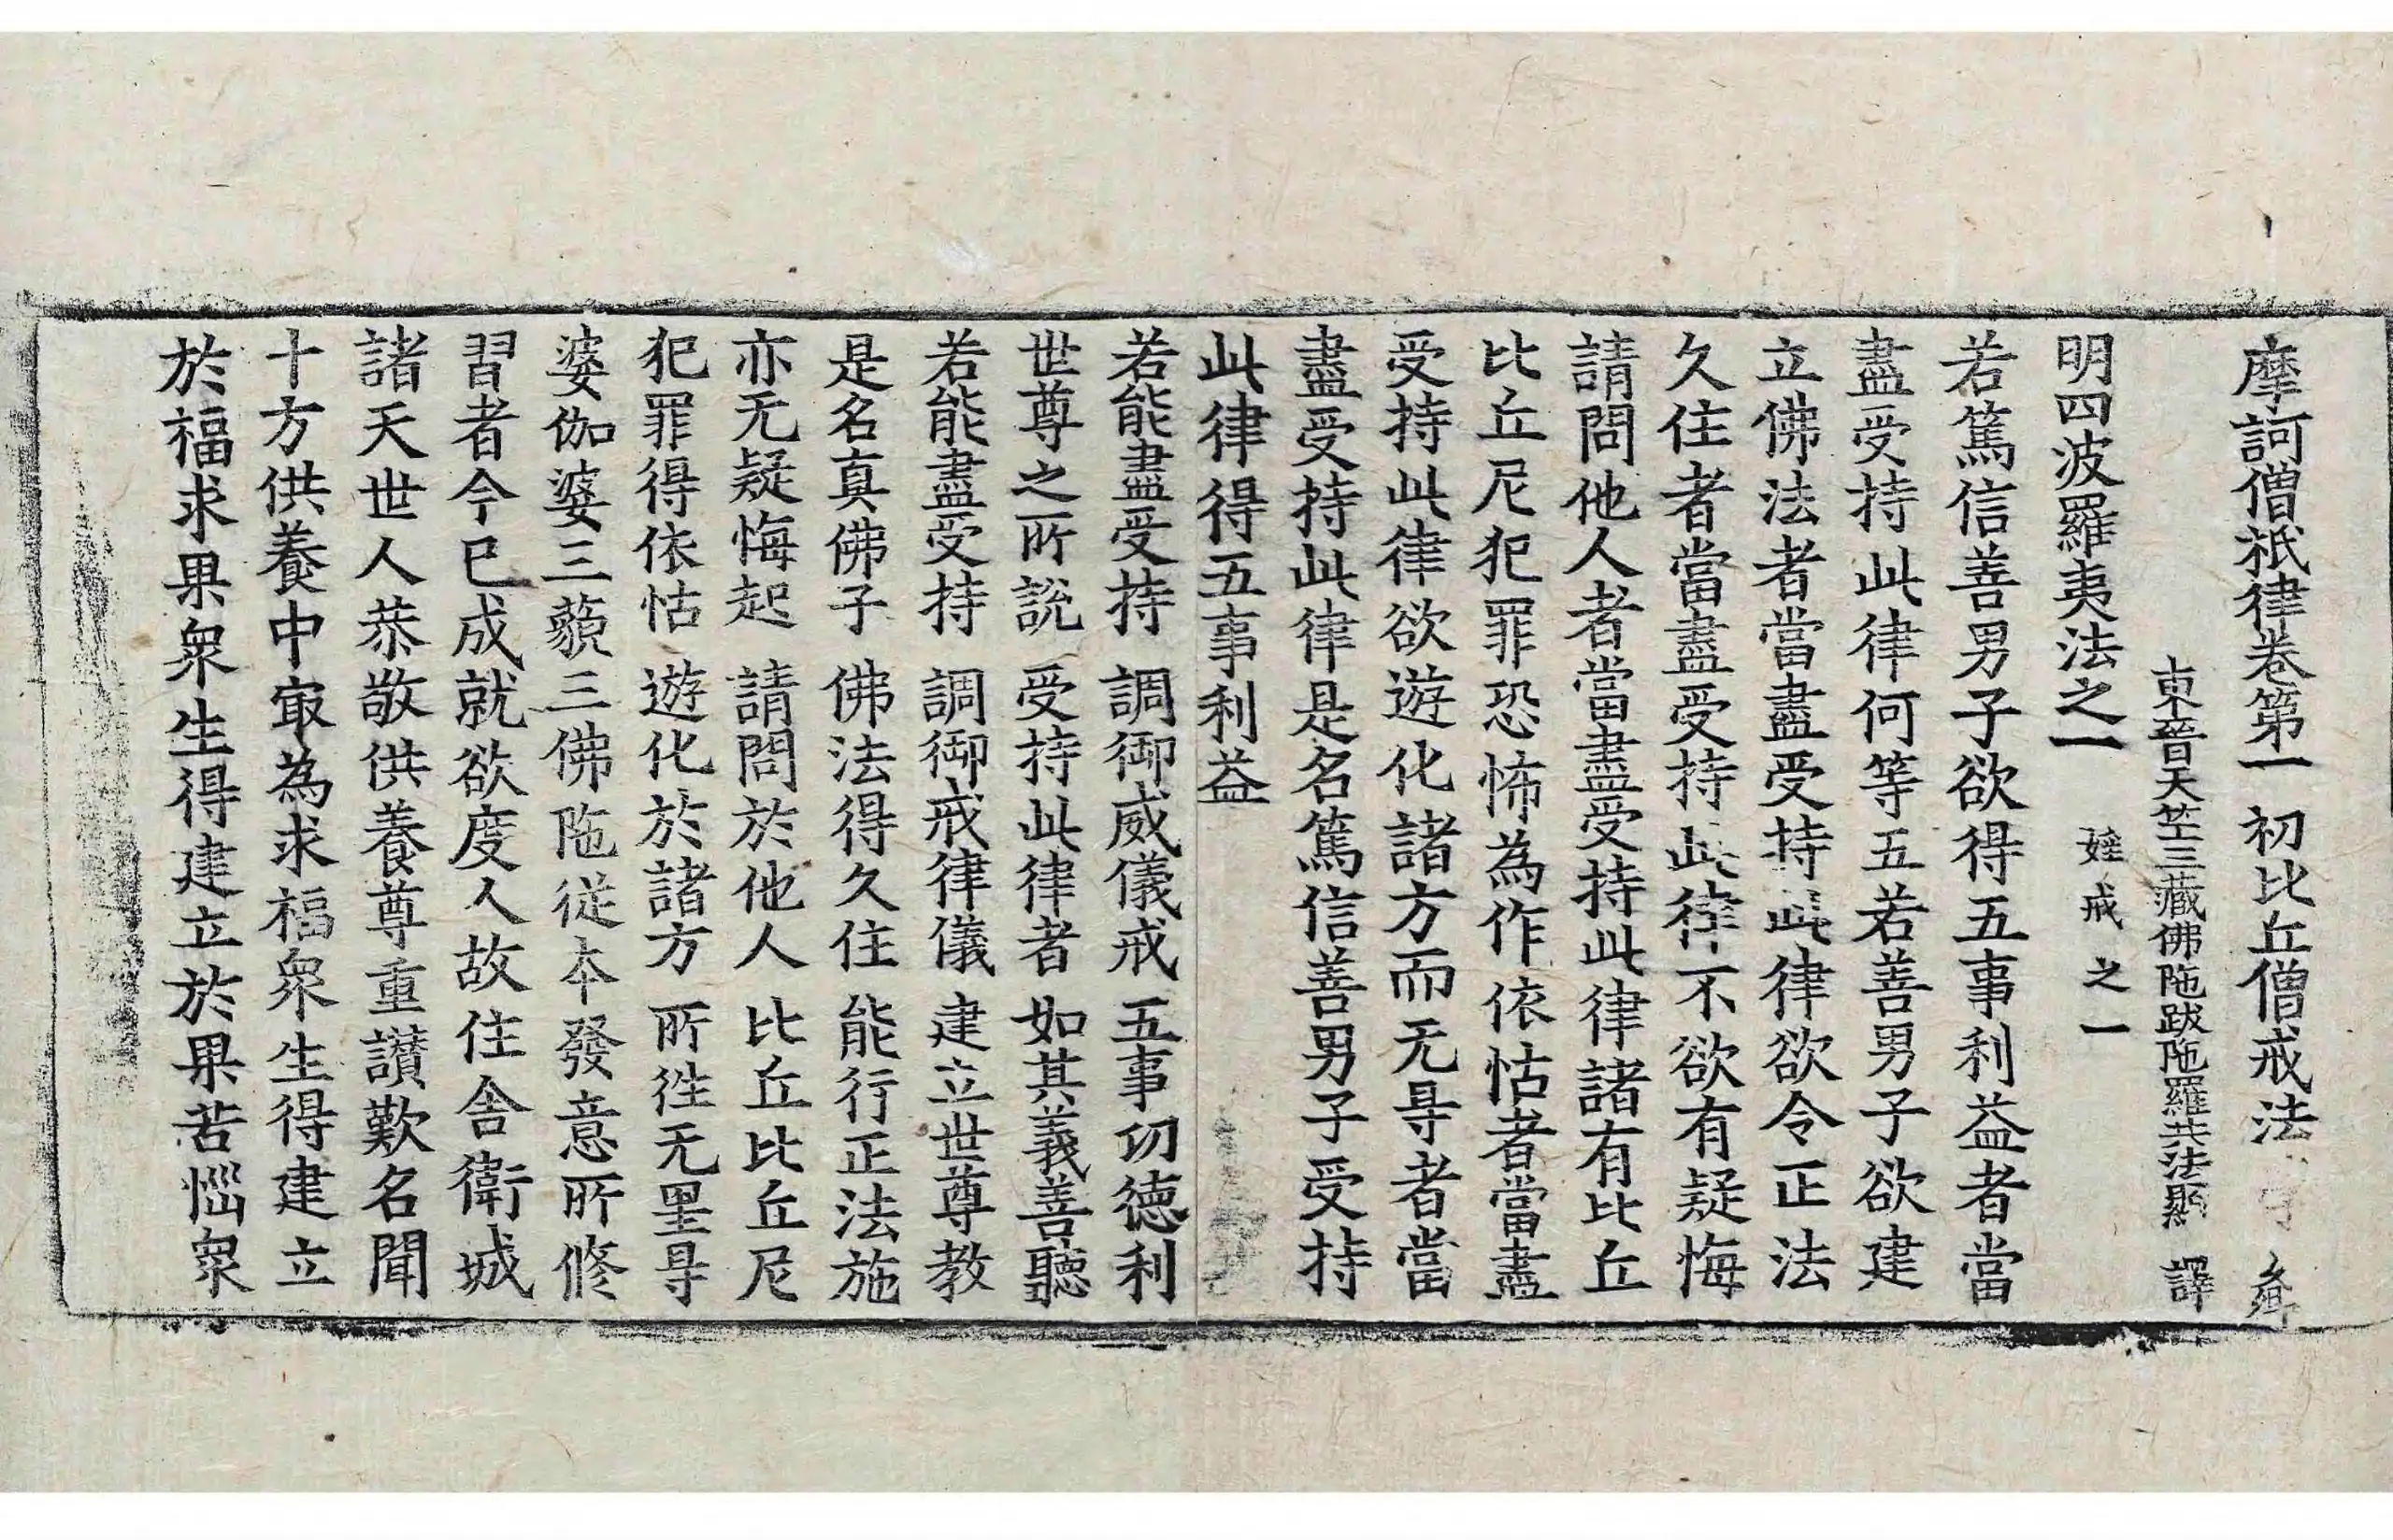 摩訶僧祇律卷第一 初比丘僧戒法
東晉天竺三藏佛陁跋陁羅共法顯 譯
明四波羅夷法之一 婬戒之一
若篤信善男子欲得五事利益者當
盡受持此律何等五若善男子欲建
立佛法者當盡受持此律欲令正法
久住者當盡受持此律不欲有疑悔
請問他人者當盡受持此律諸有比丘
比丘尼犯罪恐怖為作依怙者當盡
受持此律欲遊化諸方而无㝵者當
盡受持此律是名篤信善男子受持
此律得五事利益
若能盡受持 調御威儀戒 五事功德利
世尊之所說 受持此律者 如其義善聽
若能盡受持 調御戒律儀 建立世尊教
是名真佛子 佛法得久住 能行正法施
亦无疑悔起 請問於他人 比丘比丘尼
犯罪得依怙 遊化於諸方 所徃无罣㝵
婆伽婆三藐三佛陁從本發意所修
習者今已成就欲度人故住舎衛城
諸天世人恭敬供養尊重讃歎名聞
十方供養中㝡為求福衆生得建立
於福求果衆生得建立於果苦惱衆